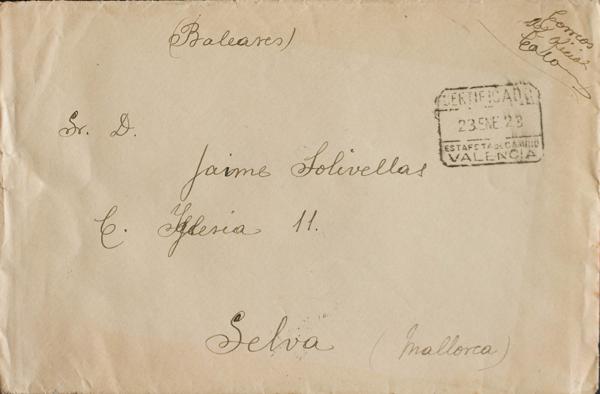 (Baleares)
Correos
Oficial
CERTIFICADO
23 ENE. 23
ESTAFETA DE CAMBIO
VALENCIA
Sr. D.
Jaime Solivellas
C. Iglesia 11.
Selva (Mallorca)